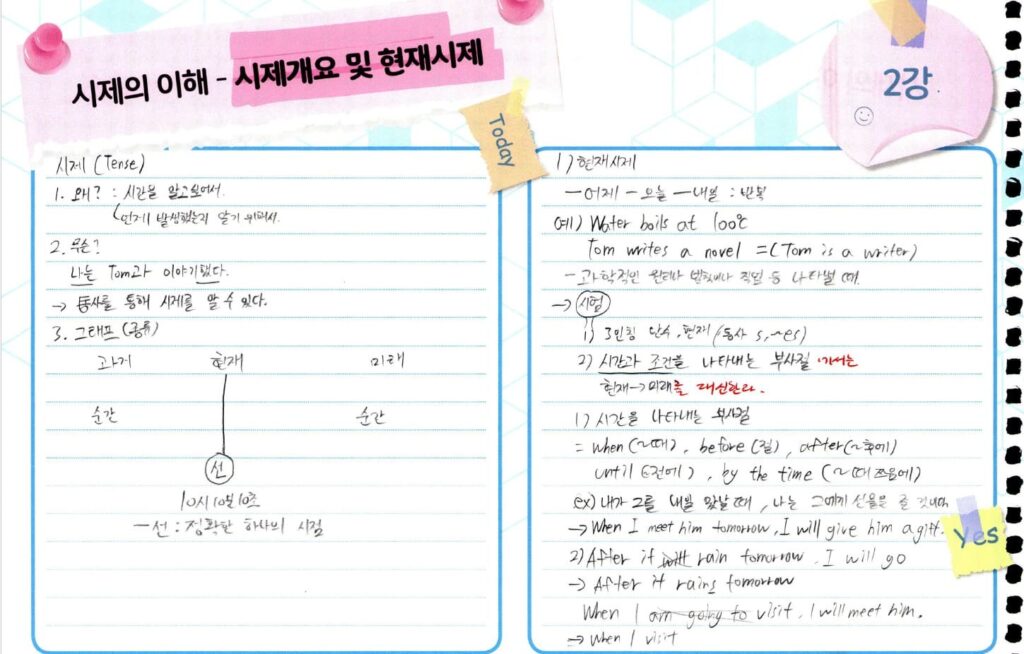 시제의 이해 - 시제개요 및 현재시제
2강
Today
시제 (Tense)
1. 왜? : 시간을 알고싶어서.
언제 발생했는지 알기 위해서.
2. 무슨?
나는 Tom과 이야기했다.
→ 동사를 통해 시제를 알 수 있다.
3. 그래프 (종류)
과거 현재 미래
순간 순간
선
10시10분10초
一 선 : 정확한 하나의 시점
1) 현재시제
一 어제 一 오늘 一 내일 : 반복
예) Water boils at 100℃
Tom writes a novel =(Tom is a writer)
- 과학적인 원리나 직업 등 나타낼 때.
→ 시험
1) 3인칭 단수, 현재 (동사 s, ~es)
2) 시간과 조건을 나타내는 부사절 에서는
현재→미래를 대신한다.
1) 시간을 나타내는 부사절
= when (~때), before (전), after (~후에)
until (~전에), by the time (~때 쯤에)
ex) 내가 그를 내일 만날 때, 나는 그에게 선물을 줄 것이다
→ When I meet him tomorrow, I will give him a gift.
2) After it will rain tomorrow, I will go
→ After it rains tomorrow
When I am going to visit, I will meet him.
→ When I visit
Yes